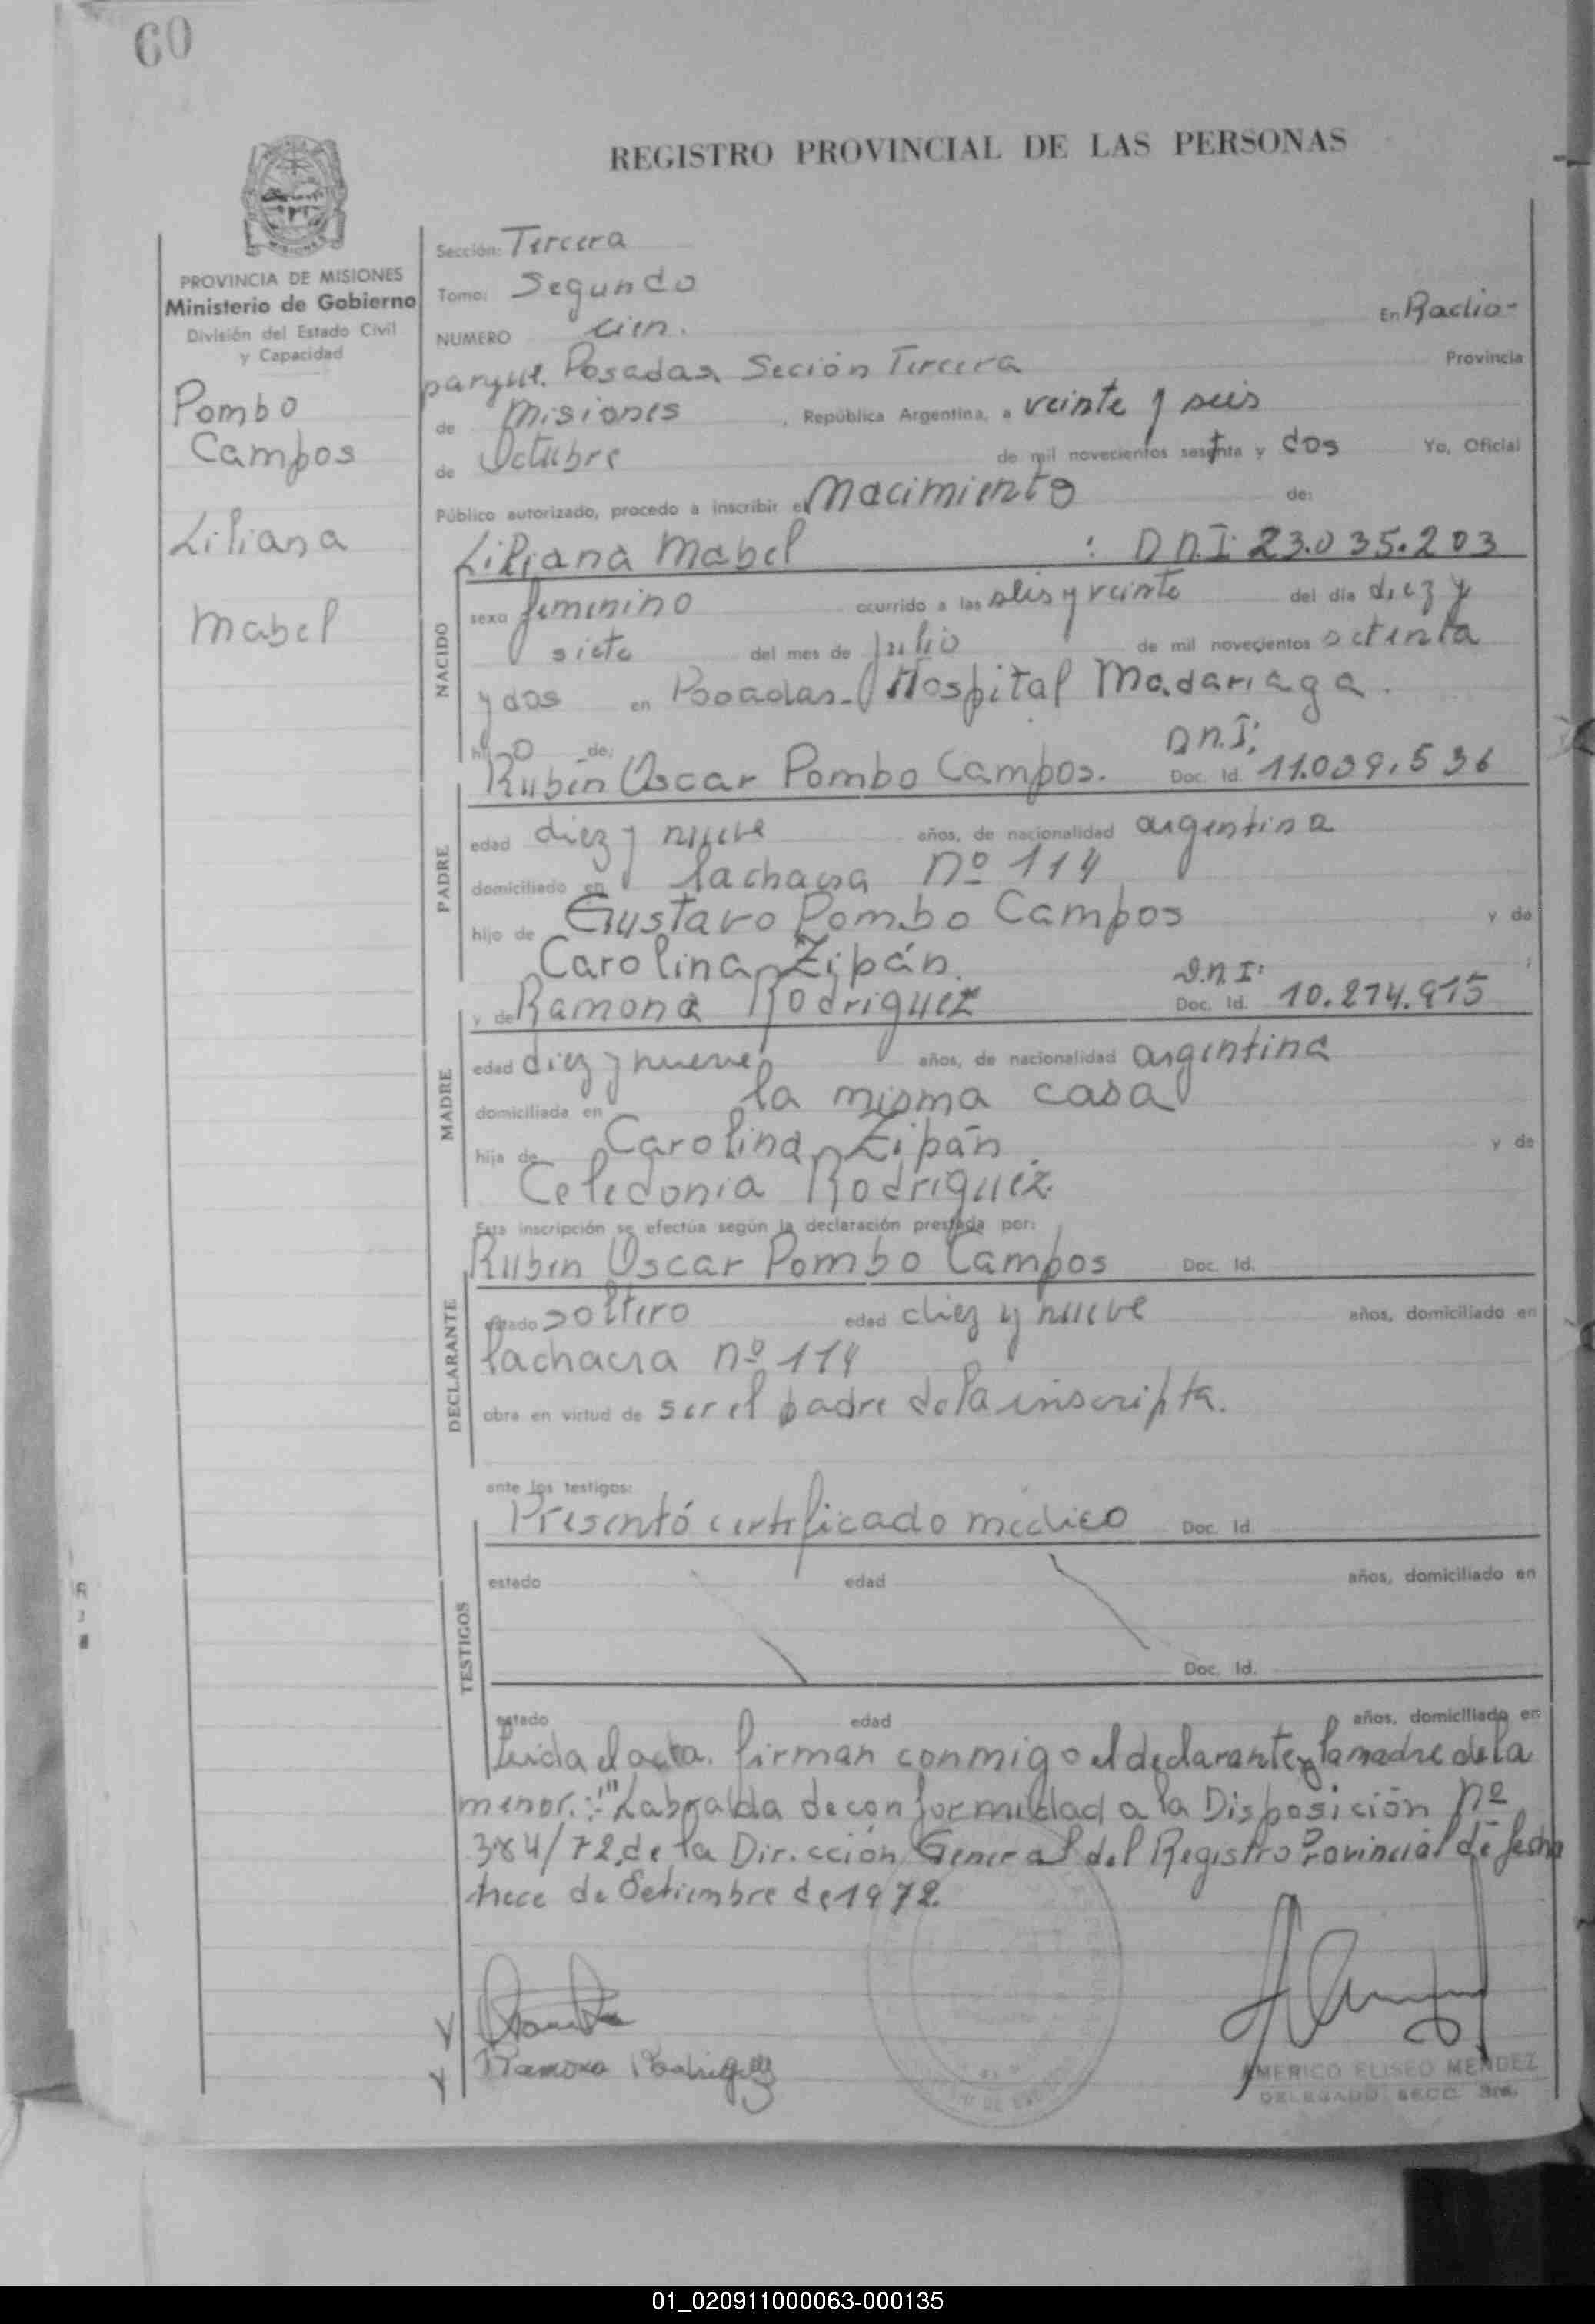 60
REGISTRO PROVINCIAL DE LAS PERSONAS
MISIONES
PROVINCIA DE MISIONES
Ministerio de Gobierno
División del Estado Civil
y Capacidad
Pombo
Campos
Liliana
Mabel
Sección: Tercera
Tomo: Segundo
NUMERO cien. En Radio-
parque. Posadas Seción Tercera Provincia
de Misiones, República Argentina, a veinte y seis
de Octubre de mil novecientos setenta y dos Yo, Oficial
Público autorizado, procedo a inscribir el Nacimiento de:
Liliana Mabel : D.N.I. 23.035.203
NACIDO
sexo femenino ocurrido a las seis y veinte del día diez y
siete del mes de Julio de mil novecientos setenta
y dos en Posadas- Hospital Madariaga.
hijo de: D.N.I.
Rubén Oscar Pombo Campos. Doc. Id. 11.039.536
PADRE
edad diez y nueve años, de nacionalidad argentina
domiciliado en lachacra nº 114
hijo de Gustavo Pombo Campos y de
Carolina Zipán. D.N.I:
y de Ramona Rodriguez Doc. Id. 10.274.975
MADRE
edad diez y nueve años, de nacionalidad argentina
domiciliada en la misma casa
hija de Carolina Zipán y de
Celedonia Rodriguez.
Esta inscripción se efectúa según la declaración prestada por:
Ruben Oscar Pombo Campos Doc. Id.
DECLARANTE
estado soltero edad diez y nueve años, domiciliado en
lachacra nº 114
obra en virtud de ser el padre de la inscripta.
ante los testigos:
Presentó certificado médico Doc. Id.
TESTIGOS
estado edad años, domiciliado en
Doc. Id.
estado edad años, domiciliado en
Leida el acta. firman conmigo el declarante y la madre de la
menor.:-" Labrada de conformidad a la Disposición nº
384/72, de la Dirección General del Registro Provincial de fecha
trece de Setiembre de 1972.
Ramona Rodriguez
AMERICO ELISEO MENDEZ
DELEGADO SECC. 3ra.
01_020911000063-000135